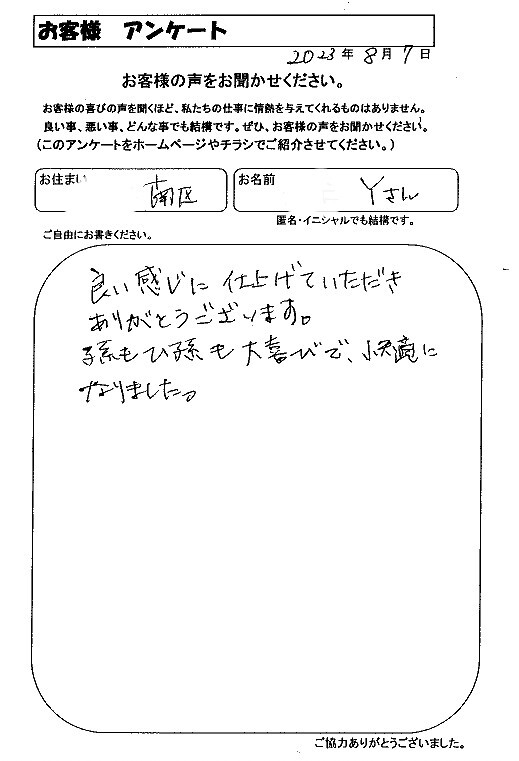 お客様 アンケート
2023年 8月 7日
お客様の声をお聞かせください。
お客様の喜びの声を聞くほど、私たちの仕事に情熱を与えてくれるものはありません。
良い事、悪い事、どんな事でも結構です。ぜひ、お客様の声をお聞かせください。
(このアンケートをホームページやチラシでご紹介させてください。)
お住まい 南区
お名前 Yさん
匿名・イニシャルでも結構です。
ご自由にお書きください。
良い感じに仕上げていただき
ありがとうございます。
孫もひ孫も大喜びで、快適に
なりました。
ご協力ありがとうございました。